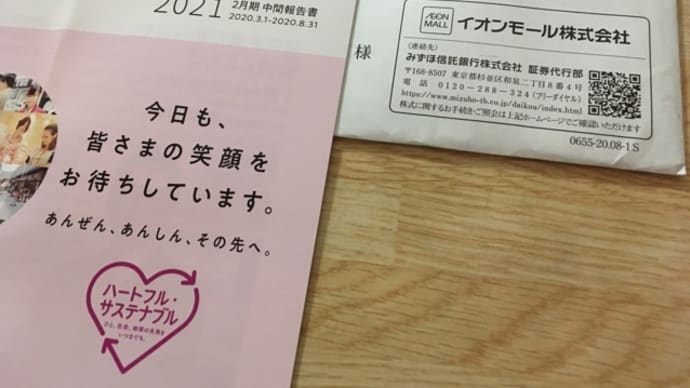 2021 2月期 中間報告書
2020.3.1-2020.8.31
今日も、
皆さまの笑顔を
お待ちしています。
あんぜん、あんしん、その先へ。
ハートフル・
サステナブル
ひと、社会、地域の未来を
いつまでも。
様
ÆON
MALL
イオンモール株式会社
(連絡先)
みずほ信託銀行株式会社 証券代行部
〒168-8507 東京都杉並区和泉二丁目8番4号
電話 0120-288-324(フリーダイヤル)
https://www.mizuho-tb.co.jp/daikou/index.html
株式に関するお手続き・ご照会は上記ホームページでご確認いただけます
0655-20.08-1S